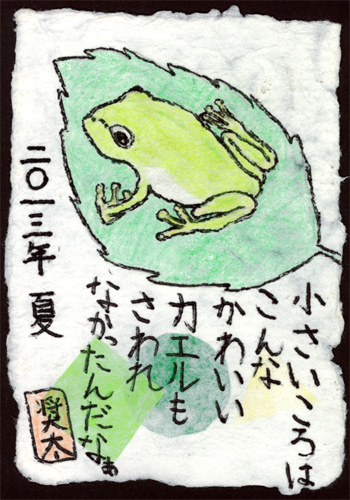 小さいころは
こんな
かわいい
カエルも
さわれ
なかったんだなぁ
二〇一三年 夏
奨太